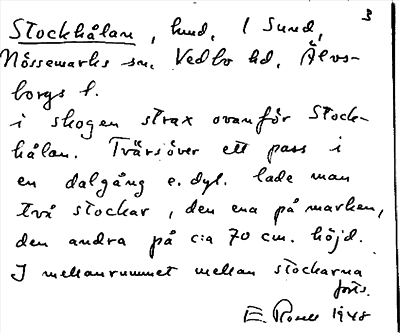 3
Stockhålan, hund. l Sund,
Nössemarks sn. Vedbo hd. Älvs-
borgs l.
i skogen strax ovanför Stock-
hålan. Tvärsöver ett pass i
en dalgång e.dyl. lade man
två stockar, den ena på marken,
den andra på c:a 70 cm. höjd.
I mellanrummet mellan stockarna
forts.
E. 1948